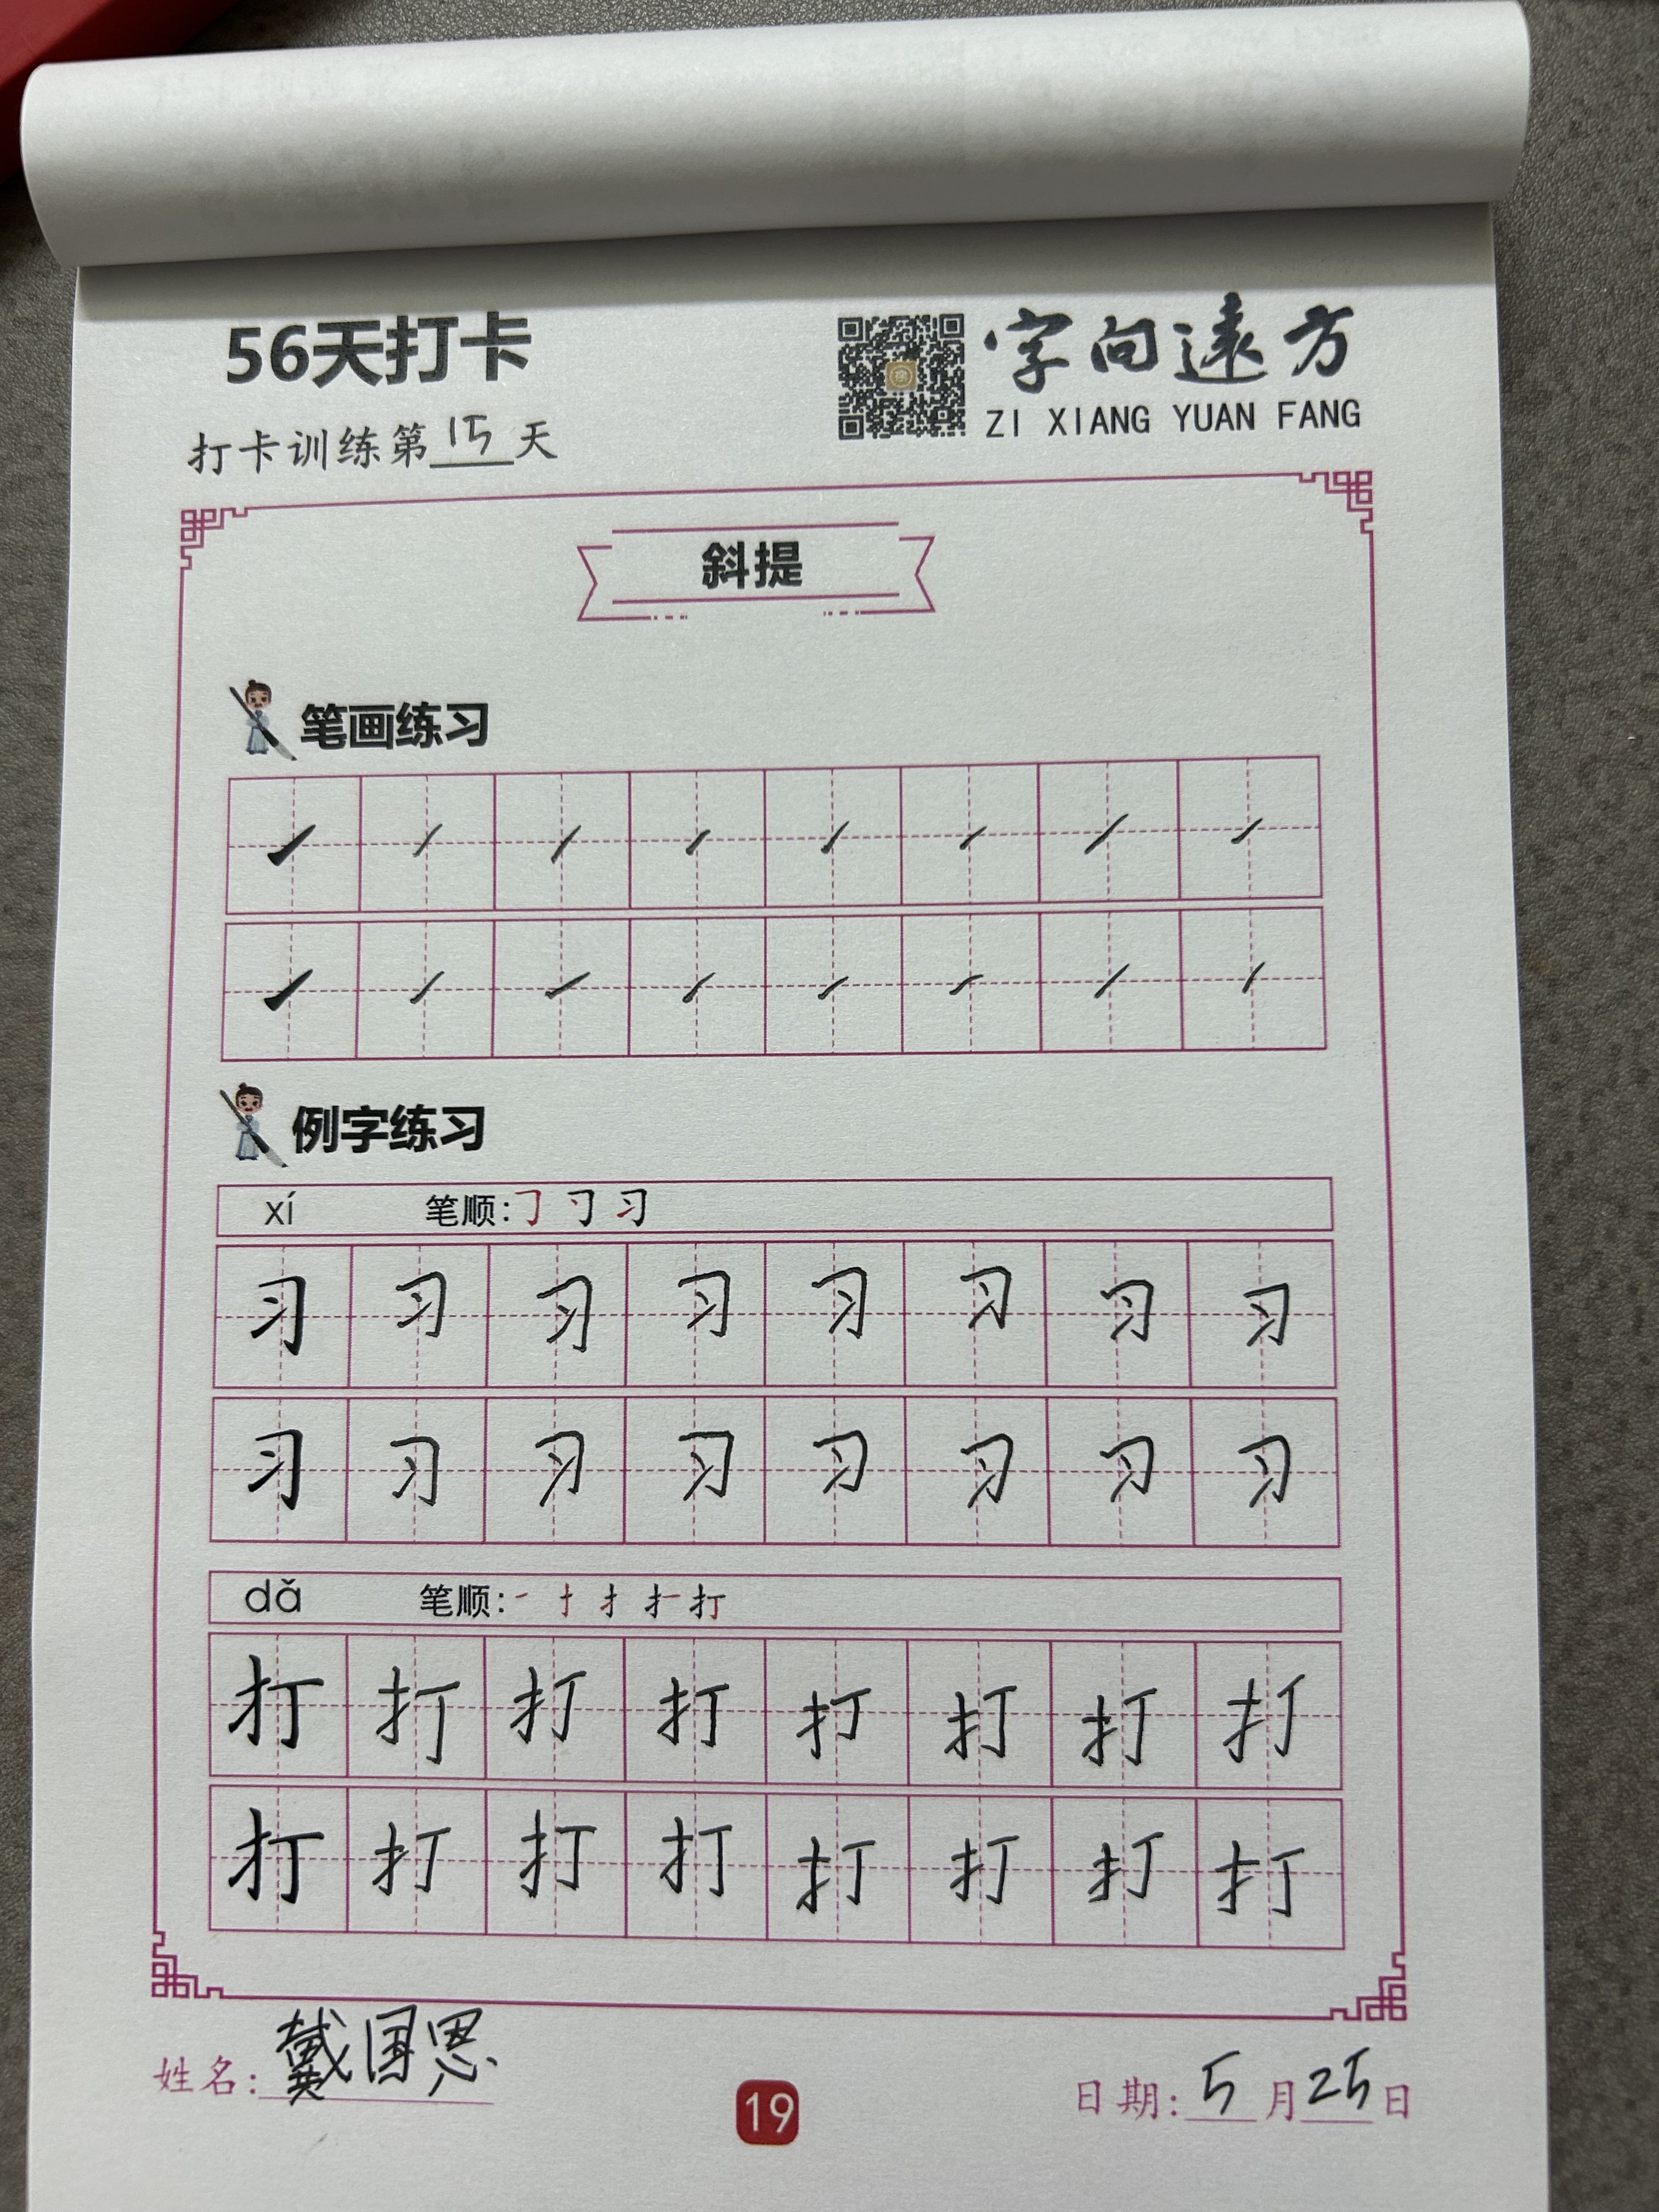 56天打卡
字向遠方
ZI XIANG YUAN FANG
打卡训练第15天
斜提
笔画练习
例字练习
xí 笔顺: 习
习 习 习 习 习 习 习 习
习 习 习 习 习 习 习 习
dǎ 笔顺: 一 十 扌 打
打 打 打 打 打 打 打 打
打 打 打 打 打 打 打 打
姓名: 戴国恩
19
日期: 5月25日